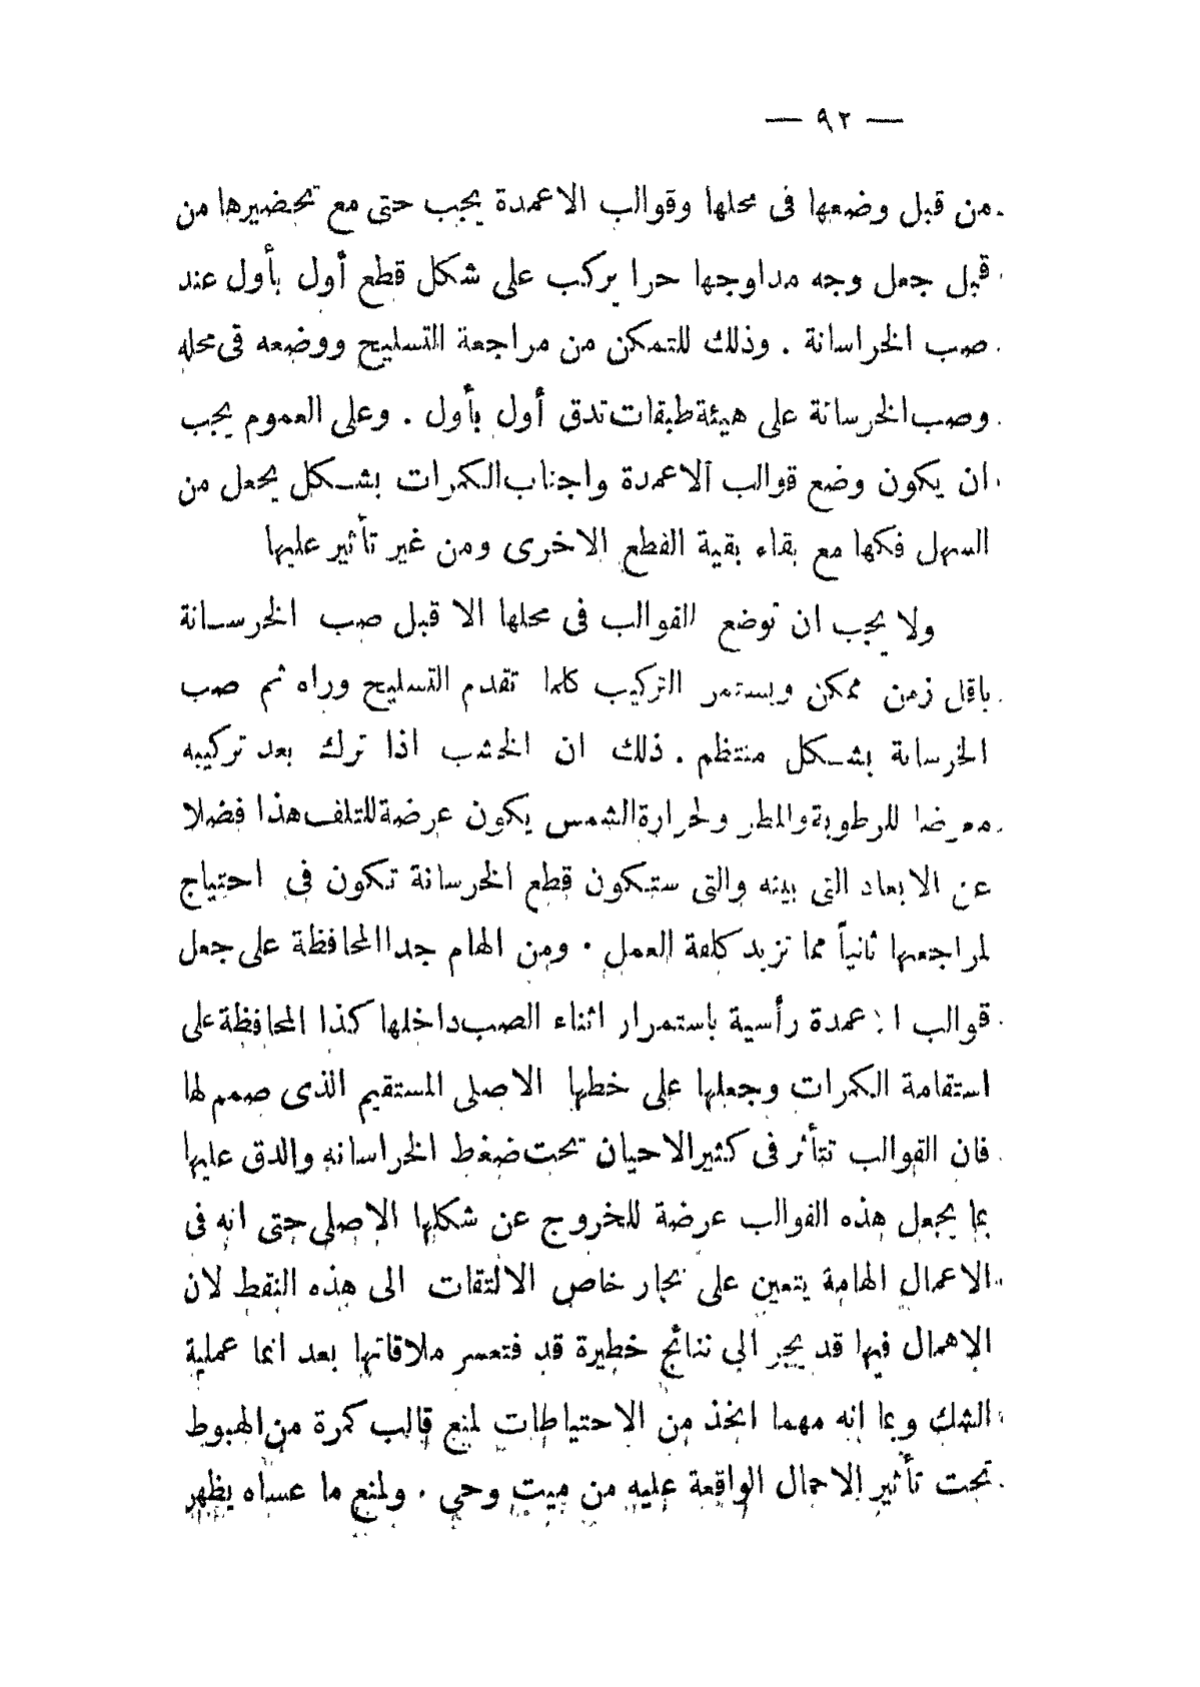 — ٩٢ —
من قبل وضعها فى محلها وقوالب الاعمدة يجب حتى مع تحضيرها من
قبل جعل وجه مداوجها حرا يركب على شكل قطع أول بأول عند
صب الخراسانة . وذلك للتمكن من مراجعة التسليح ووضعه فى محله
وصب الخرسانة على هيئة طبقات تدق أول بأول . وعلى العموم يجب
ان يكون وضع قوالب الاعمدة واجناب الكمرات بشكل يجعل من
السهل فكها مع بقاء بقية القطع الاخرى ومن غير تأثير عليها
ولا يجب ان توضع القوالب فى محلها الا قبل صب الخرسانة
باقل زمن ممكن ويستمر التركيب كلما تقدم التسليح وراه ثم صب
الخرسانة بشكل منتظم . ذلك ان الخشب اذا ترك بعد تركيبه
معرضا للرطوبة والمطر ولحرارة الشمس يكون عرضة للتلف هذا فضلا
عن الابعاد التى بينه والتى ستكون قطع الخرسانة تكون فى احتياج
لمراجعتها ثانياً مما تزيد كلفة العمل . ومن الهام جدا المحافظة على جعل
قوالب الاعمدة رأسية باستمرار اثناء الصب داخلها كذا المحافظة على
استقامة الكمرات وجعلها على خطها الاصلى المستقيم الذى صمم لها
فان القوالب تتأثر فى كثير الاحيان تحت ضغط الخراسانه والدق عليها
بما يجعل هذه القوالب عرضة للخروج عن شكلها الاصلى حتى انه فى
الاعمال الهامة يتعين على نجار خاص الالتفات الى هذه النقط لان
الاهمال فيها قد يجر الى نتائج خطيرة قد فتعسر ملاقاتها بعد اتما عملية
الشك وبما انه مهما اتخذ من الاحتياطات لمنع قالب كمرة من الهبوط
تحت تأثير الاحمال الواقعة عليه من ميت وحى . ولمنع ما عساه يظهر